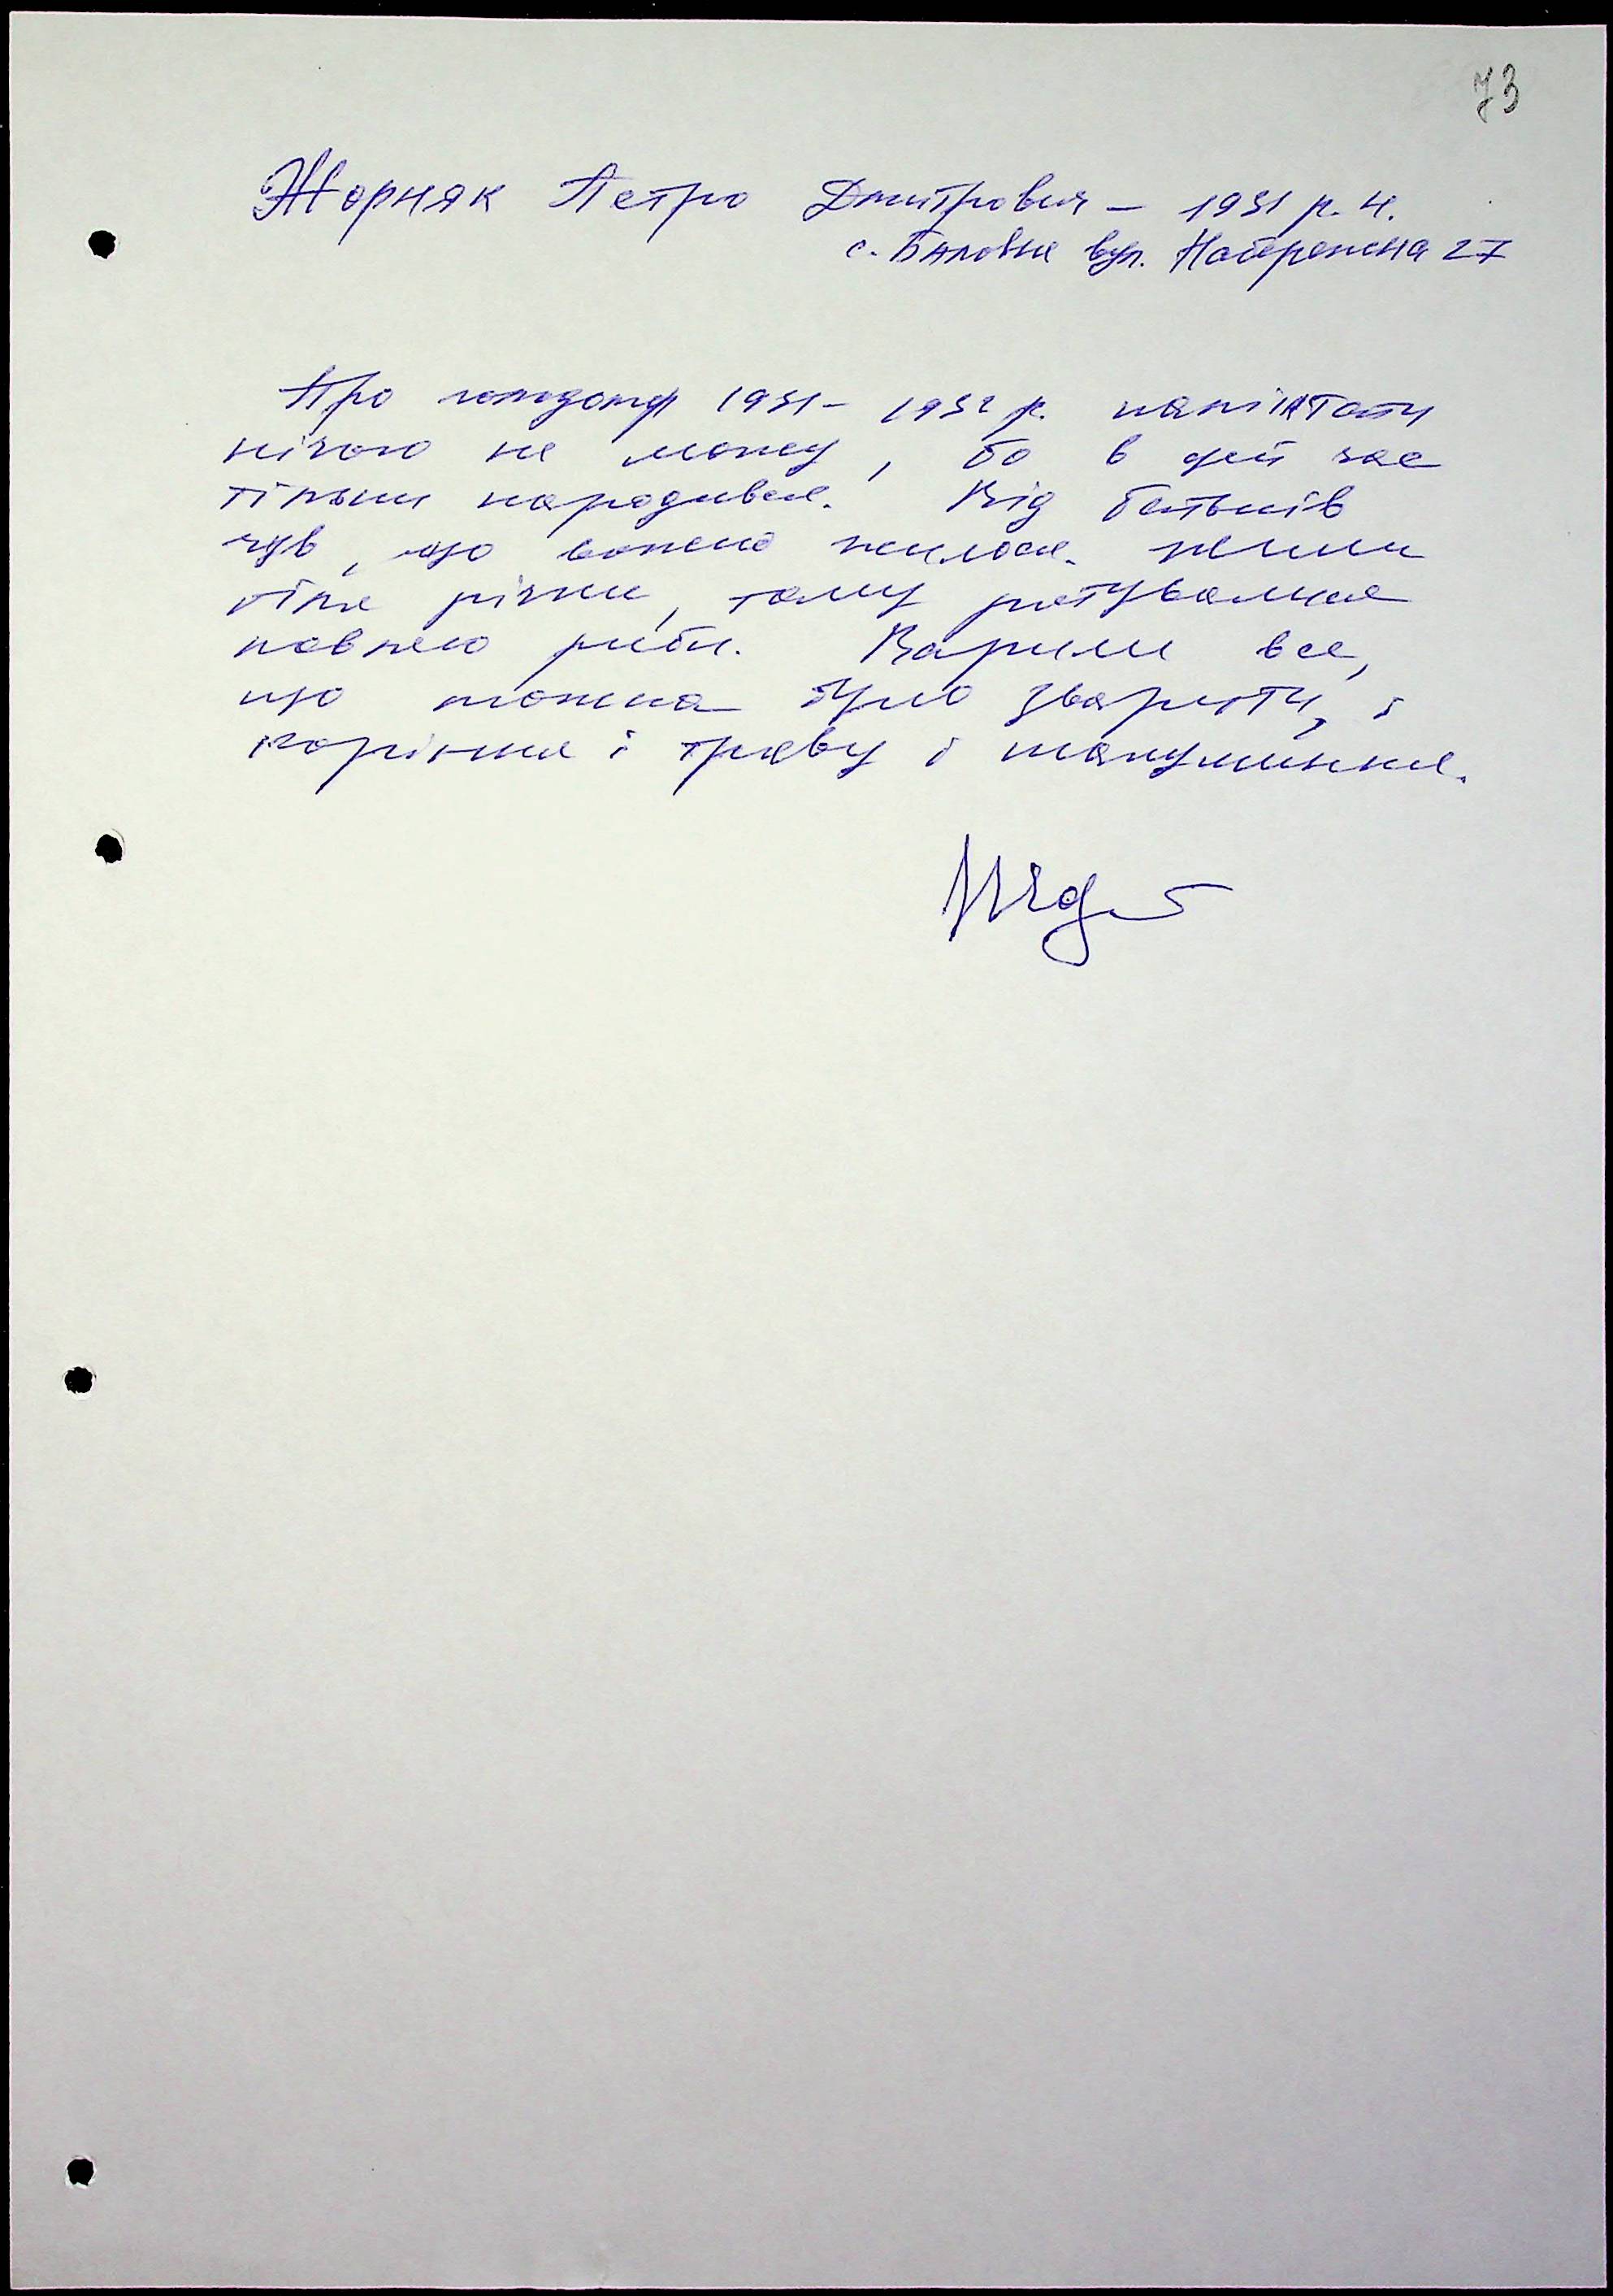 73
Жорняк Петро Дмитрович – 1931 р. н.
с. Баловне вул. Набережна 27
Про голодомор 1931 – 1932 р. пам'ятати
нічого не можу, бо в цей час
тільки народився. Від батьків
чув, що важко жилося. жили
біля річки, тому рятувалися
ловлею риби. Варили все,
що можна було зварити, і
коріння і траву і лушпиння.